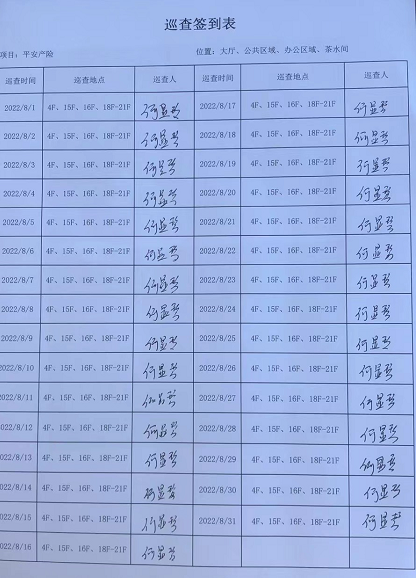 巡查签到表
项目：平安产险 位置：大厅、公共区域、办公区域、茶水间
巡查时间 巡查地点 巡查人 巡查时间 巡查地点 巡查人
2022/8/1 4F、15F、16F、18F-21F 何显 2022/8/17 4F、15F、16F、18F-21F 何显
2022/8/2 4F、15F、16F、18F-21F 何显 2022/8/18 4F、15F、16F、18F-21F 何显
2022/8/3 4F、15F、16F、18F-21F 何显 2022/8/19 4F、15F、16F、18F-21F 何显
2022/8/4 4F、15F、16F、18F-21F 何显 2022/8/20 4F、15F、16F、18F-21F 何显
2022/8/5 4F、15F、16F、18F-21F 何显 2022/8/21 4F、15F、16F、18F-21F 何显
2022/8/6 4F、15F、16F、18F-21F 何显 2022/8/22 4F、15F、16F、18F-21F 何显
2022/8/7 4F、15F、16F、18F-21F 何显 2022/8/23 4F、15F、16F、18F-21F 何显
2022/8/8 4F、15F、16F、18F-21F 何显 2022/8/24 4F、15F、16F、18F-21F 何显
2022/8/9 4F、15F、16F、18F-21F 何显 2022/8/25 4F、15F、16F、18F-21F 何显
2022/8/10 4F、15F、16F、18F-21F 何显 2022/8/26 4F、15F、16F、18F-21F 何显
2022/8/11 4F、15F、16F、18F-21F 何显 2022/8/27 4F、15F、16F、18F-21F 何显
2022/8/12 4F、15F、16F、18F-21F 何显 2022/8/28 4F、15F、16F、18F-21F 何显
2022/8/13 4F、15F、16F、18F-21F 何显 2022/8/29 4F、15F、16F、18F-21F 何显
2022/8/14 4F、15F、16F、18F-21F 何显 2022/8/30 4F、15F、16F、18F-21F 何显
2022/8/15 4F、15F、16F、18F-21F 何显 2022/8/31 4F、15F、16F、18F-21F 何显
2022/8/16 4F、15F、16F、18F-21F 何显